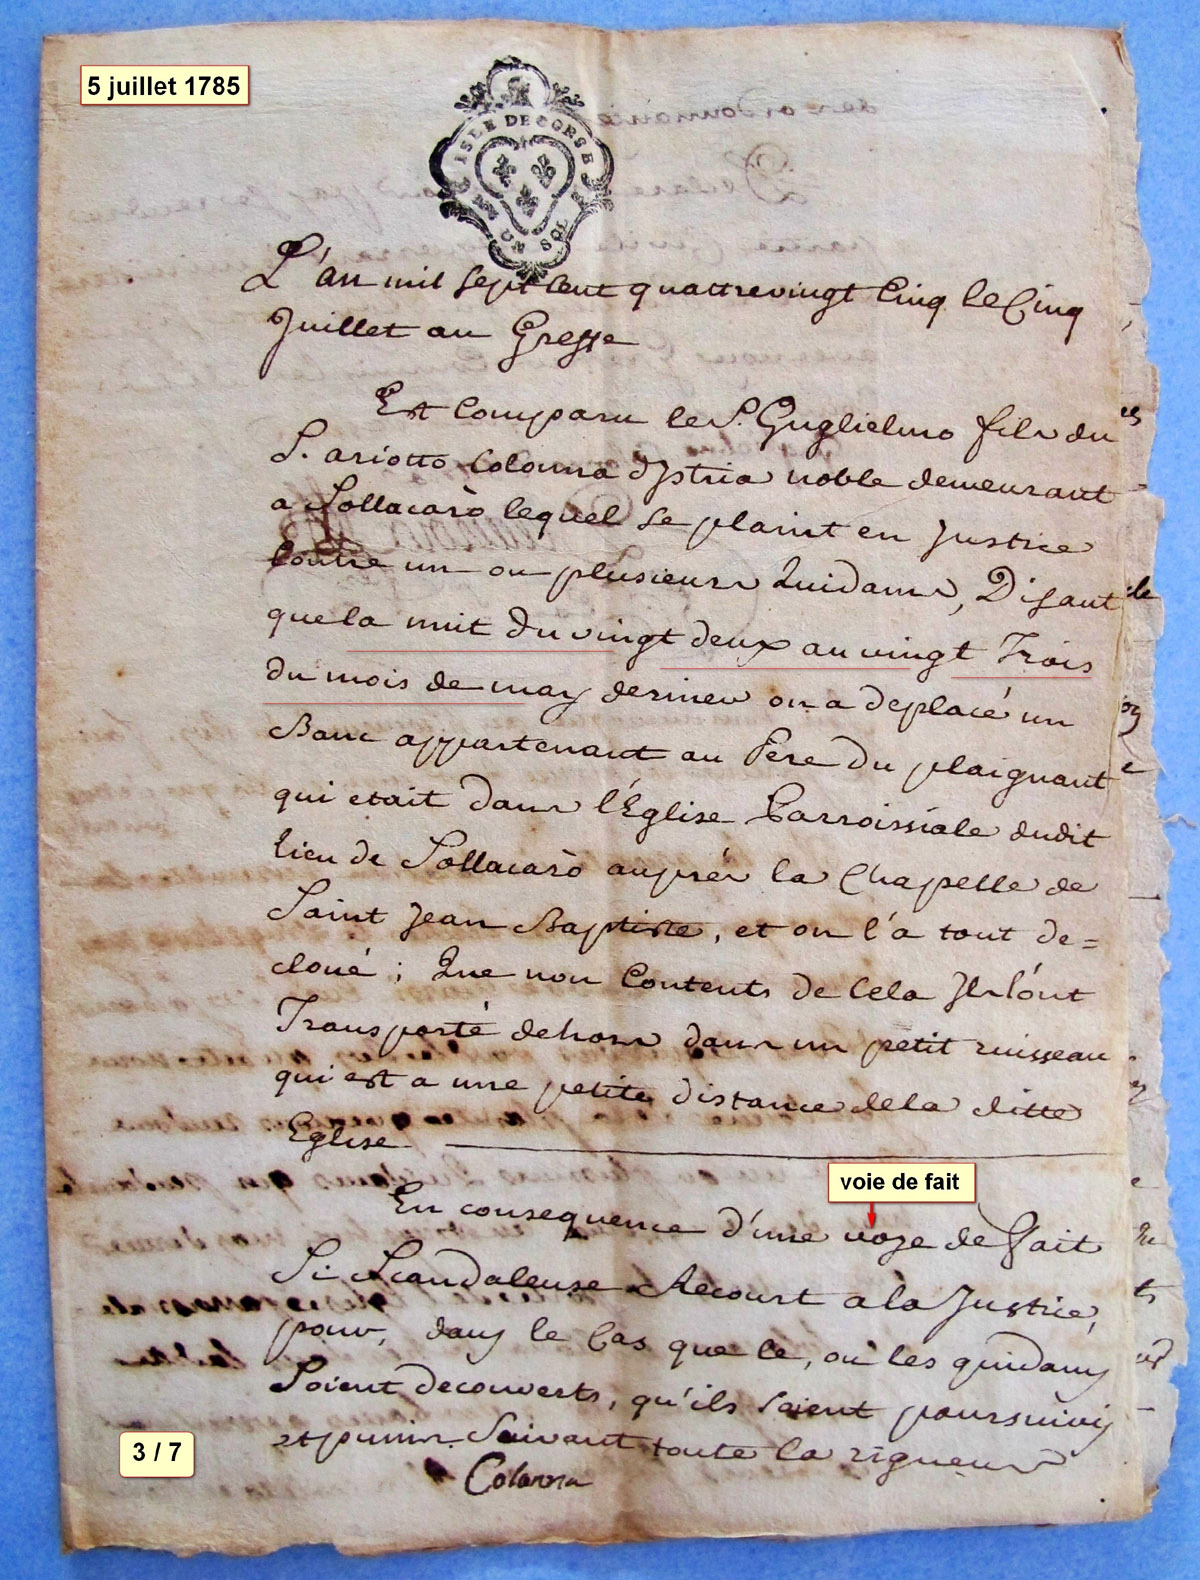 5 juillet 1785
ISLE DE CORSE
UN SOL
L'an mil sept cent quattrevingt Cinq le Cinq
Juillet au Greffe
Est Comparu le S.r Guglielmo fils du
S. ariotto Colonna d'Istria noble demeurant
a Sollacarò lequel se plaint en Justice
Contre un ou plusieurs Quidams, Disant
que la nuit du vingt deux au vingt Trois
du mois de may dernier on a deplacé un
Banc appartenant au Pere du plaignant
qui etait dans l'Eglise Parroissiale dudit
lieu de Sollacarò auprés la Chapelle de
Saint Jean Baptiste, et on l'a tout de=
cloué ; Que non Contents de Cela Ils l'ont
Transporté dehors dans un petit ruisseau
qui est a une petite distance de la ditte
Eglise
voie de fait
En consequence d'une voye de Fait
Si Scandaleuse Recourt a la Justice,
pour, dans le Cas que le, ou les quidams
Soient decouverts, qu'ils soient poursuivis
et punis Suivant toute la rigueur
Colonna
3 / 7